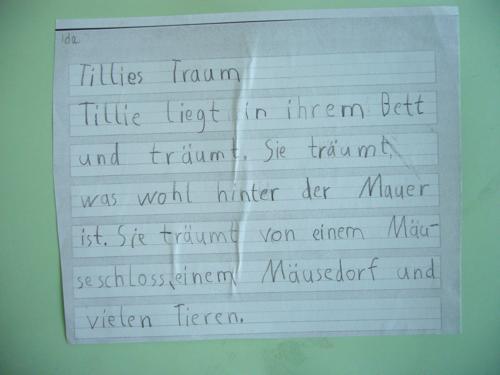 Ida
Tillies Traum
Tillie liegt in ihrem Bett
und träumt. Sie träumt,
was wohl hinter der Mauer
ist. Sie träumt von einem Mäu-
seschloss, einem Mäusedorf und
vielen Tieren.